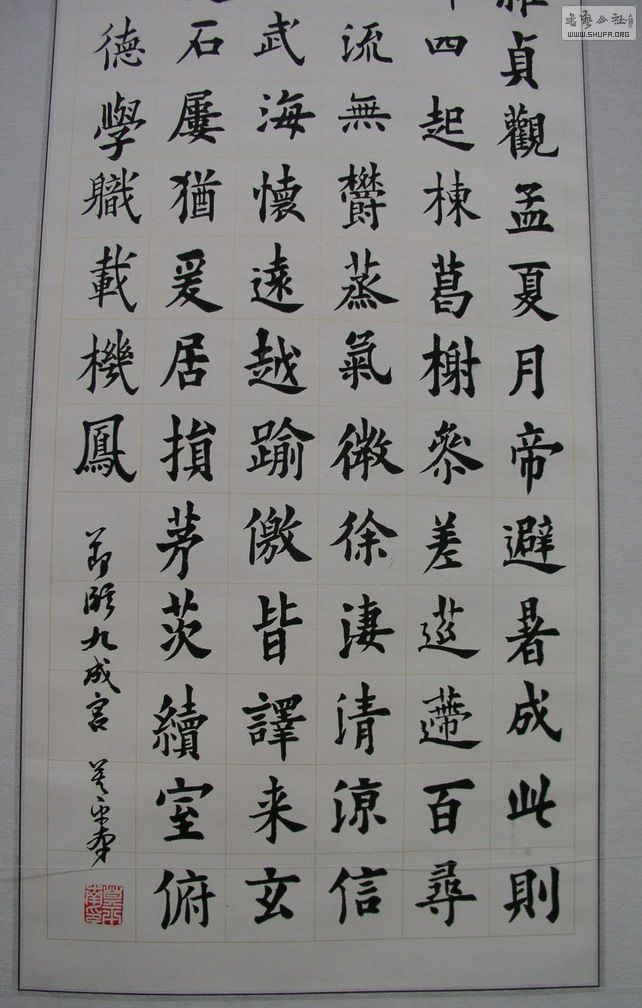 貞觀孟夏月帝避暑成此則
四起棟葛榭叅差百尋
流無欝蒸氣微徐淒清凉信
武海懷遠越踰儌皆譯来玄
石屢猶爰居損茅茨續室俯
德學職載機鳳
節臨九成宮
书藝公社
WWW.SHUFA.ORG